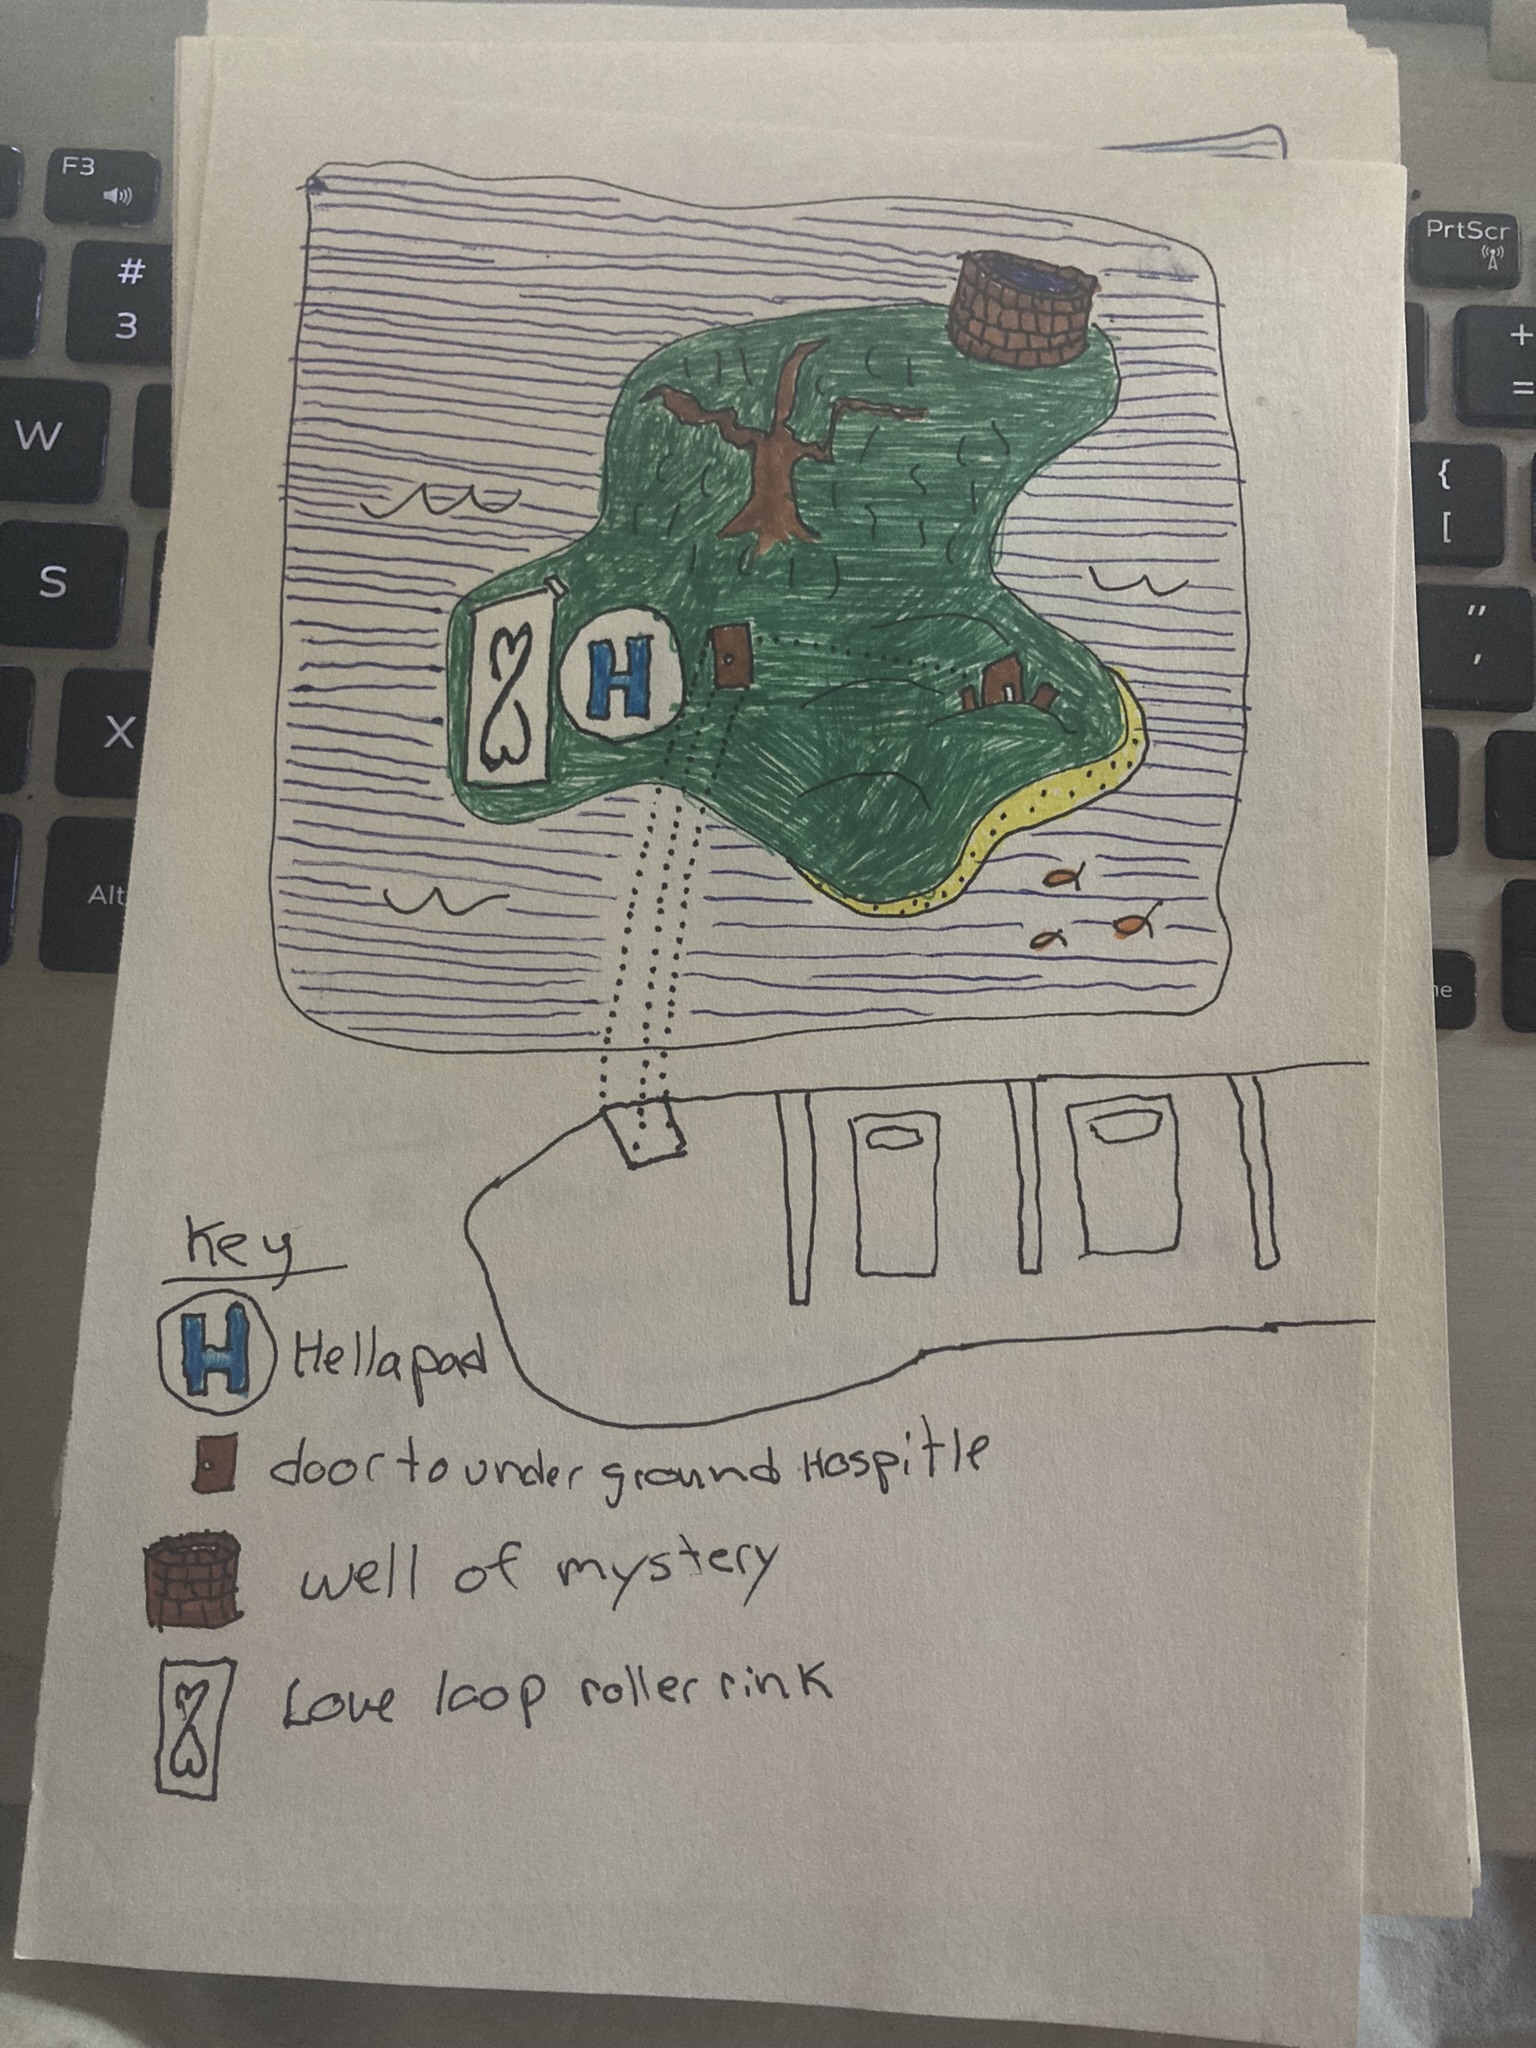 F3
#
3
W
S
X
Alt
PrtScr
+
=
{
[
"
,
H
Key
H Hellapad
door to under ground Hospitle
well of mystery
Love loop roller rink